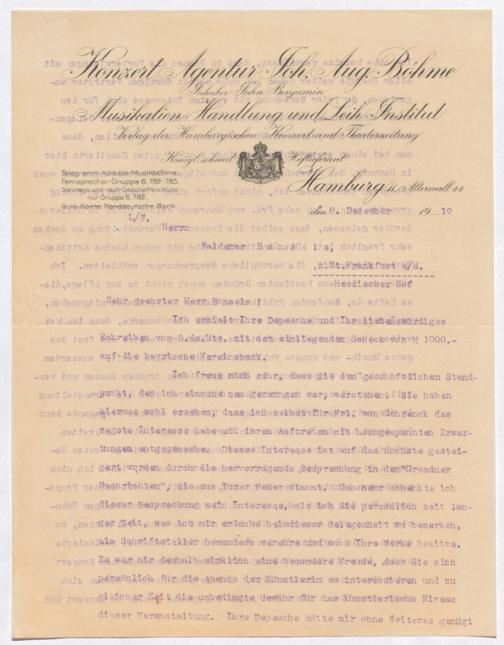 Konzert Agentur Joh. Aug. Böhme
Inhaber John Benjamin
Musikalien Handlung und Leih Institut
Verlag der Hamburgischen Konzert and Theaterzeitung
Königl. schwed. Hoflieferant
Telegramm-Adresse: Musikböhme.
Fernsprecher: Gruppe 6, 782-785.
Sonntags und nach Geschäftsschluss
nur Gruppe 6, 782.
Giro-Konto Norddeutsche Bank.
Hamburg 11, Alterwall 44
den 8. Dezember 1919
L/W.
Herrn
Waldemar Bonsels,
z.Zt. Frankfurt a/M.
Hessischer Hof
Sehr geehrter Herr Bonsels!
Ich erhielt Ihre Depesche und Ihr liebenswürdiges
Schreiben von 6. ds.Mts. mit dem einliegenden Scheck von M 1000.-
auf die bayrische Vereinsbank.
Ich freue mich sehr, dass Sie den geschäftlichen Stand-
punkt, den ich einzunehmen gezwungen war, verstehen. Sie haben
hieraus wohl ersehen, dass ich selbst für Frl. von Schrenck das
regste Interesse habe und ihrem Auftreten mit hochgespannten Erwar-
tungen entgegensehe. Dieses Interesse ist auf das höchste gestei-
gert worden durch die hervorragende Besprechung in den "Dresdner
Nachrichten", die aus Ihrer Feder stammt. Umsomehr schenkte ich
dieser Besprechung mein Interesse, als ich Sie persönlich seit lan-
ger Zeit, was ich mir erlaube bei dieser Gelegenheit zu bemerken,
als Schriftsteller besonders verehre und auch Ihre Werke besitze.
Es war mir deshalb wirklich eine besondere Freude, dass Sie sich
persönlich für die Abende der Künstlerin so interessieren und zu
gleicher Zeit die unbedingte Gewähr für das künstlerische Niveau
dieser Veranstaltung. Ihre Depesche hätte mir ohne Weiteres genügt